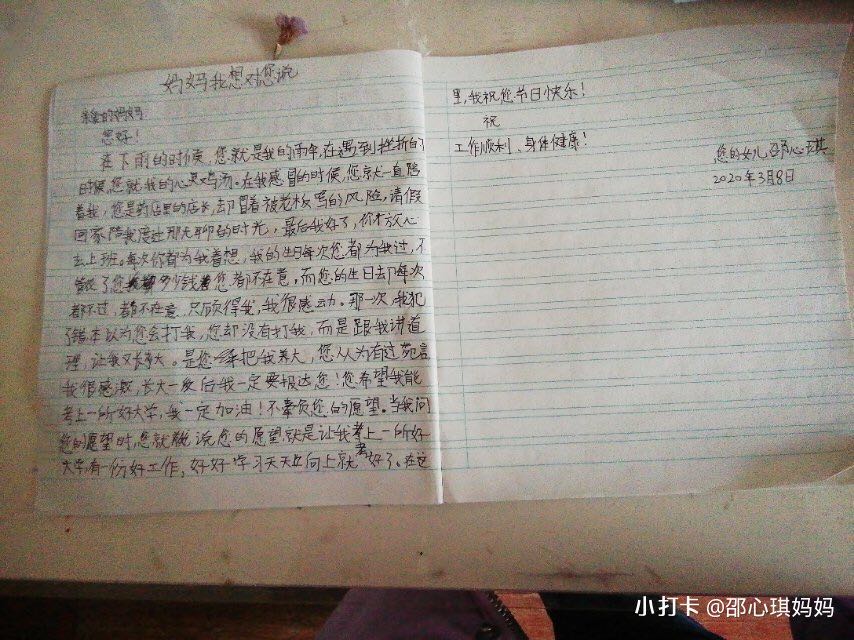 妈妈我想对您说
亲爱的妈妈
您好！
在下雨的时候，您就是我的雨伞，在遇到挫折的
时候，您就我的心灵鸡汤。在我感冒的时候，您就一直陪
着我，您是药店里的店长，却冒着被老板骂的风险，请假
回家陪我度过那无聊的时光，最后我好了，你才放心
去上班。每次你都为我着想，我的生日每次您都为我过，不
管花了您多少钱您都不在意，而您的生日却每次
都不过，都不在意，只顾得我，我很感动。那一次，我犯
了错本以为您会打我，您却没有打我，而是跟我讲道
理，让我又长大。是您一手把我养大，您从为有过怨言
我很感激，长大以后我一定要报达您！您希望我能
考上一所好大学，我一定加油！不辜负您的愿望。当我问
您的愿望时，您就说您的愿望就是让我考上一所好
大学，有一份好工作，好好学习天天向上就好了。在这
里，我祝您节日快乐！
祝
工作顺利、身体健康！
您的女儿邵心琪
2020年3月8日
小打卡 @邵心琪妈妈